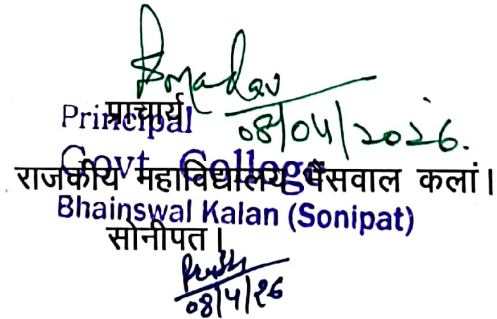 08/04/2026.
प्राचार्य
Principal
Govt. College
राजकीय महाविधालय भैंसवाल कलां।
Bhainswal Kalan (Sonipat)
सोनीपत।
08/4/26